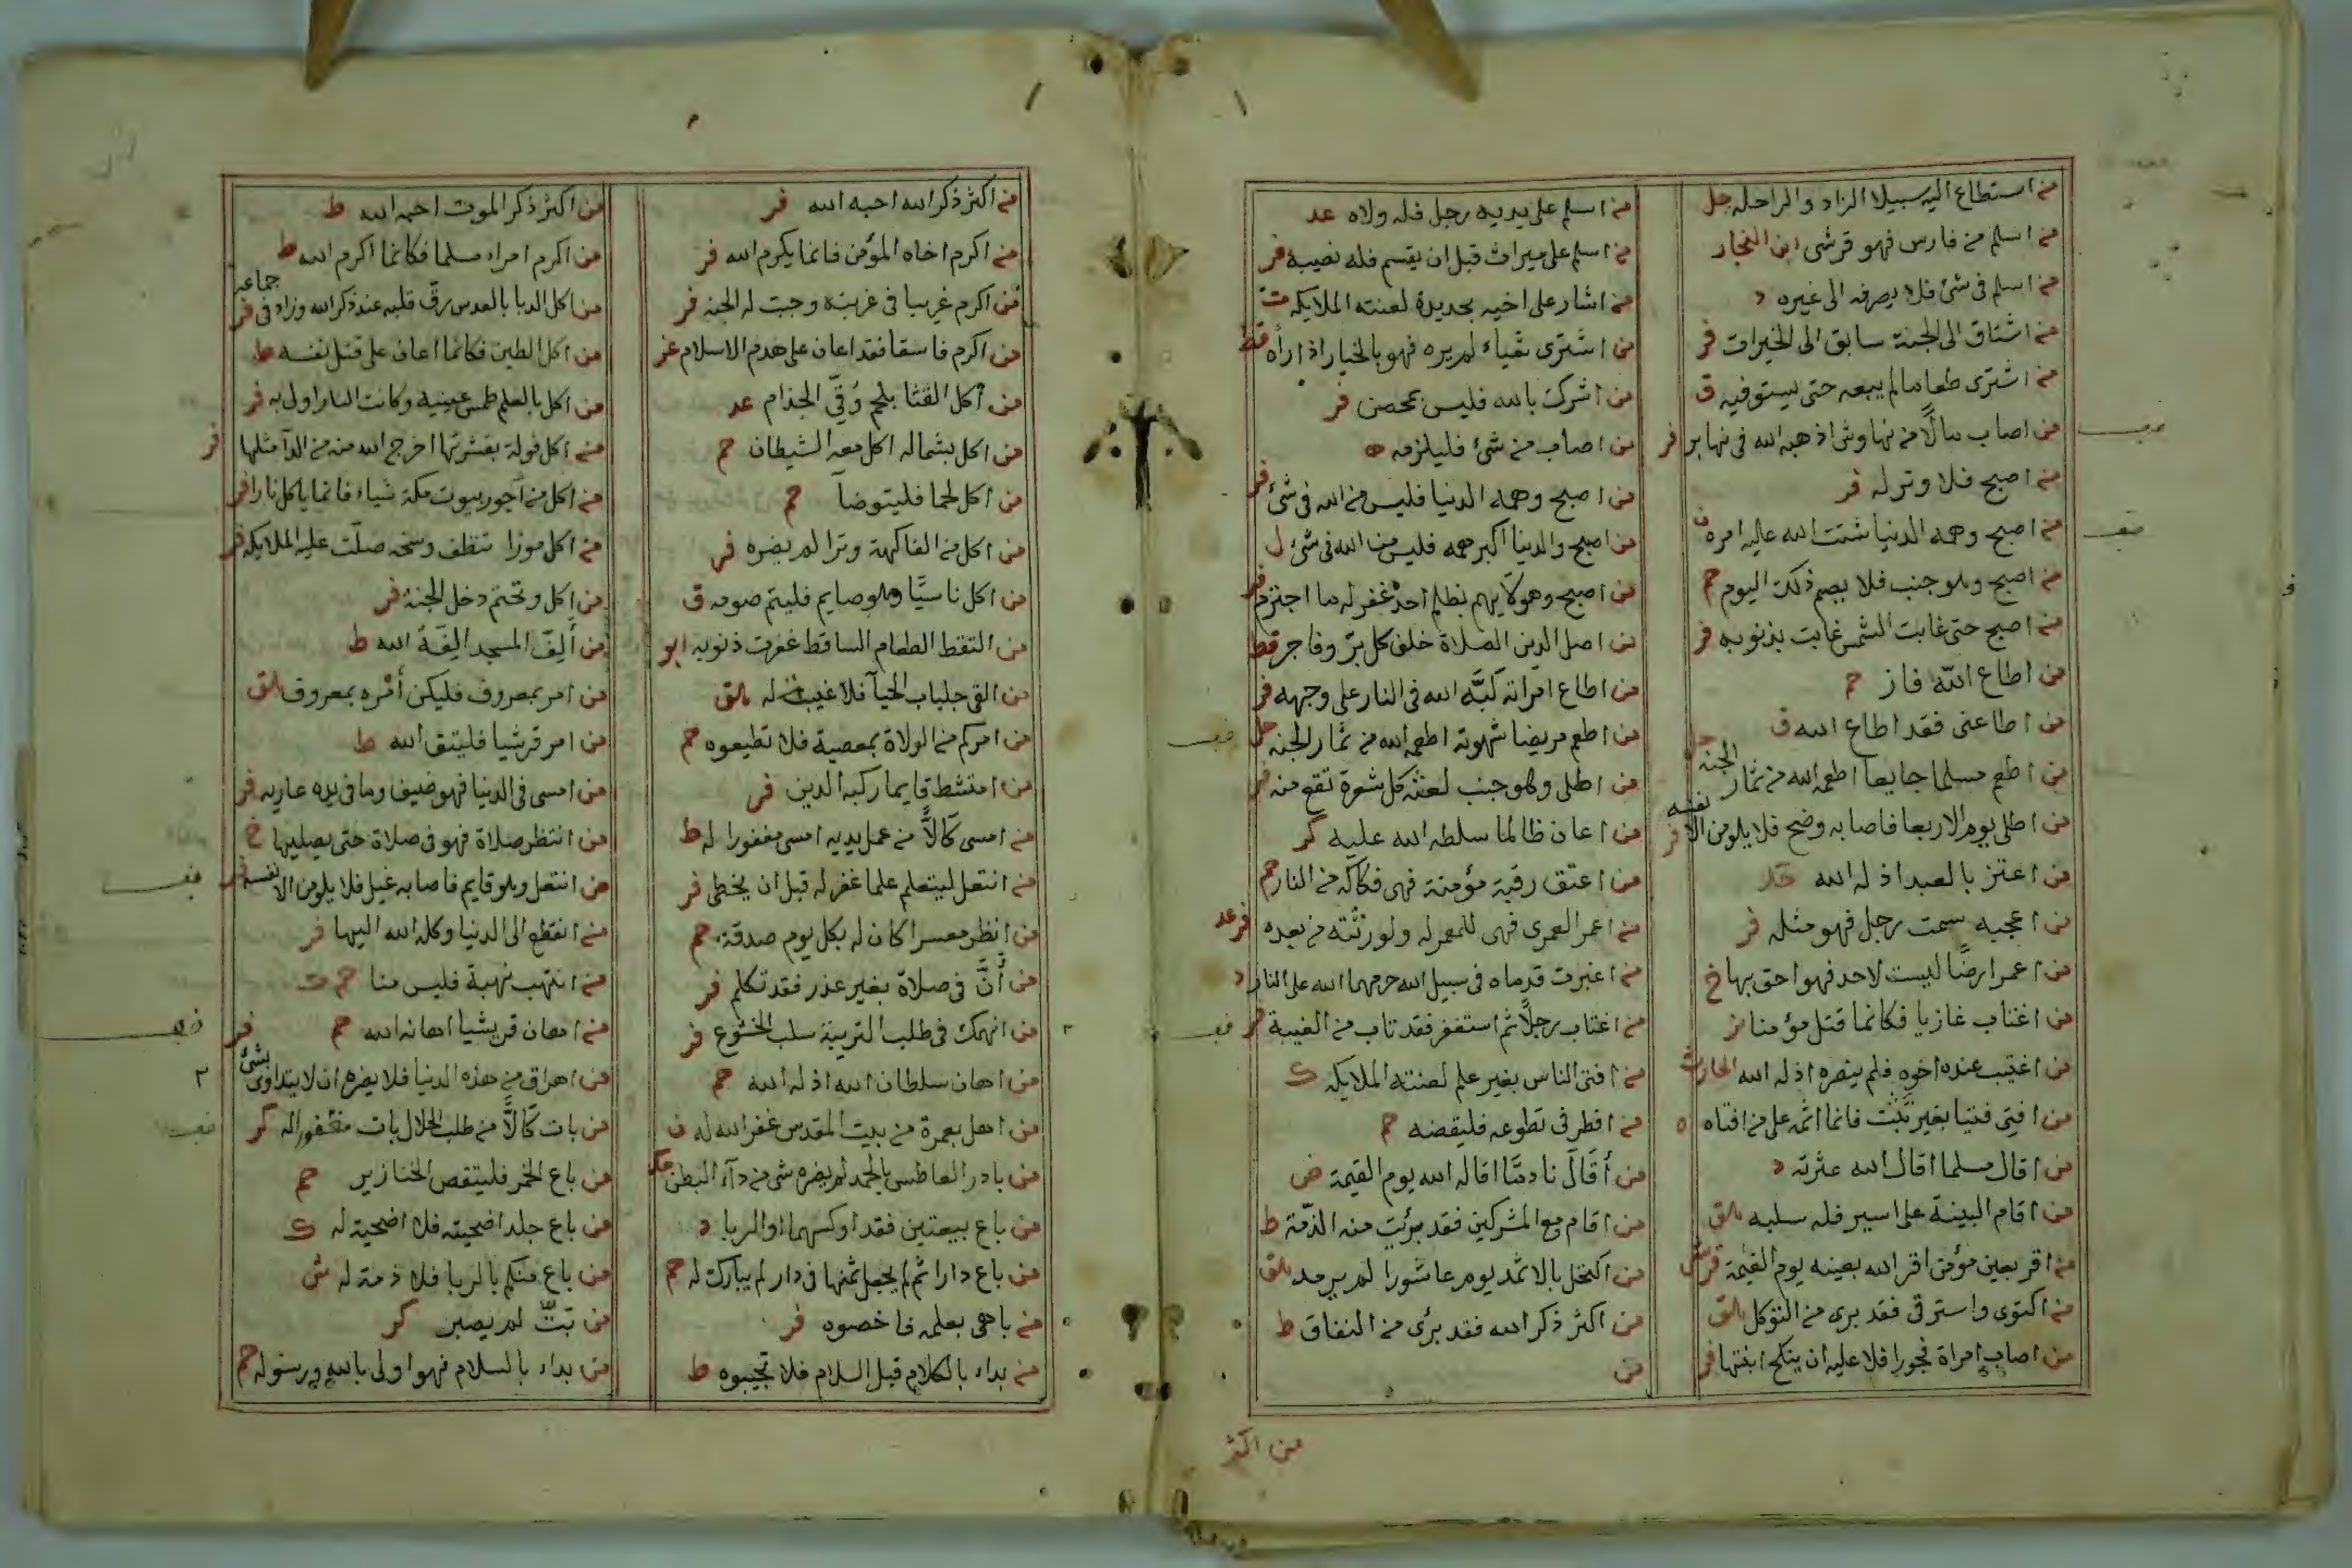 من استطاع اليه سبيلا الزاد والراحله حل
من اسلم من فارس فهو قرشى ابن النجار
من اسلم فى شئ فلا يصرفه الى غيره د
من اشتاق الى الجنة سابق الى الخيرات فر
من اشترى طعاما لم يبعه حتى يستوفيه ق
من اصاب مالًا من نهاوش اذهبه الله فى نهابر فر
من اصبح فلا وتر له فر
من اصبح وهمه الدنيا شتت الله عليه امره
من اصبح وهو جنب فلا يصم ذلك اليوم حم
من اصبح حتى غابت الشمس غابت بذنوبه فر
من اطاع الله فاز حم
من اطاعنى فقد اطاع الله ق
من اطعم مسلما جايعا اطعمه الله من ثمار الجنة حل
من اطلى يوم الاربعا فاصابه وضح فلا يلومن الا نفسه فر
من اعتز بالعبد اذله الله
من اعجبه سمت رجل فهو مثله فر
من اعمر ارضًا ليست لاحد فهو احق بها خ
من اغتاب غازيا فكانما قتل مؤمنا
من اغتيب عنده اخوه فلم ينصره اذله الله الحارث
من افتى فتيا بغير تثبت فانما اثمه على من افتاه ه
من اقال مسلما اقال الله عثرته د
من اقام البينة على اسير فله سلبه هق
من اقر بعين مؤمن اقر الله بعينه يوم القيمة
من اكتوى واسترقى فقد برى من التوكل هق
من اصاب امراة فجورا فلا عليه ان ينكح ابنتها فر
من اسلم على يديه رجل فله ولاه عد
من اسلم على ميراث قبل ان يقسم فله نصيبه فر
من اشار على اخيه بحديدة لعنته الملايكه ت
من اشترى شياء لم يره فهو بالخيار اذا رأه قط
من اشرك بالله فليس بمحصن فر
من اصاب من شئ فليلزمه ه
من اصبح وهمه الدنيا فليس من الله فى شئ فر
من اصبح والدنيا اكبر همه فليس من الله فى شئ ل
من اصبح وهو لا يهم بظلم احد غفر له ما اجترم فر
من اصل الدين الصلاة خلف كل برّ وفاجر قط
من اطاع امراته كبّه الله فى النار على وجهه فر
من اطعم مريضا شهوته اطعمه الله من ثمار الجنه حل
من اطلى وهو جنب لعنته كل شعرة تقع منه فر
من اعان ظالما سلطه الله عليه كر
من اعتق رقبة مؤمنة فهى فكاكه من النار حم
من اعمر العمرى فهى للمعمر له ولورثته من بعده فر عد
من اغبرت قدماه فى سبيل الله حرمهما الله على النار د
من اغتاب رجلًا ثم استغفر فقد تاب من الغيبة فر
من افتى الناس بغير علم لعنته الملايكه ك
من افطر فى تطوعه فليقضه حم
من أقال نادمًا اقاله الله يوم القيمة ض
من اقام مع المشركين فقد برئت منه الذمّة ط
من اكتحل بالاثمد يوم عاشورا لم يرمد هق
من اكثر ذكر الله فقد برئ من النفاق ط
من
من اكثر
من اكثر ذكر الله احبه الله فر
من اكرم اخاه المؤمن فانما يكرم الله فر
من اكرم غريبا فى غربته وجبت له الجنه فر
من اكرم فاسقا فقد اعان على هدم الاسلام عز
من أكل القثا بلحم وُقى الجذام عد
من اكل بشماله اكل معه الشيطان حم
من اكل لحما فليتوضأ حم
من اكل من الفاكهة وترا لم يضره فر
من اكل ناسيًا وهو صايم فليتم صومه ق
من التقط الطعام الساقط غفرت ذنوبه ابو
من القى جلباب الحيآ فلا غيبة له هق
من امركم من الولاة بمعصية فلا تطيعوه حم
من امتشط قايما ركبه الدين فر
من امسى كالًّا من عمل يديه امسى مغفورا له ط
من انتعل ليتعلم علما غفر له قبل ان يخطى فر
من انظر معسرا كان له بكل يوم صدقة حم
من أنَّ فى صلاة بغير عذر فقد تكلم فر
من انهمك فى طلب التربية سلب الخشوع فر
من اهان سلطان الله اذله الله حم
من اهل بعمرة من بيت المقدس غفر الله له ن
من بادر العاطس بالحمد لم يضره شى من دآء البطن عكر
من باع بيعتين فقد اوكسهما او الربا د
من باع دارا ثم لم يجعل ثمنها فى دار لم يبارك له حم
من باهى بعلمه فاخصوه فر
من بداء بالكلام قبل السلام فلا تجيبوه ط
من اكثر ذكر الموت احبه الله ط
من اكرم امراء مسلما فكانما اكرم الله ط
من اكل الدبا بالعدس رقّ قلبه عند ذكر الله وزاد فى جماعه فر
من اكل الطين فكانما اعان على قتل نفسه ط
من اكل بالعلم طمس عينيه وكانت النار اولى به فر
من اكل فولة بقشرتها اخرج الله منه من الدآ مثلها فر
من اكل من اجور بيوت مكة شياء فانما ياكل نارا فر
من اكل موزا تنظف وسخه صلّت عليه الملايكه فر
من اكل وتختم دخل الجنة فر
من ألِفَ المسجد الِفَهُ الله ط
من امر بمعروف فليكن أمره بمعروف هق
من امر قرشيا فليتق الله ط
من امسى فى الدنيا فهو ضيف وما فى يده عاريه فر
من انتظر صلاة فهو فى صلاة حتى يصليها خ
من انتعل وهو قايم فاصابه غيل فلا يلومن الا نفسه فر
من انقطع الى الدنيا وكله الله اليها فر
من انتهب نهبة فليس منا حم ت
من اهان قريشيا اهانه الله حم فر
من اهراق من هذه الدنيا فلا يضره ان لا يتداوى بشئ
من بات كالًّا من طلب الحلال بات مغفورا له كر
من باع الخمر فليتقص الخنازير حم
من باع جلد اضحيته فلا اضحية له ك
من باع منكم بالربا فلا ذمة له ش
من بَثّ لم يصبر كر
من بداء بالسلام فهو اولى بالله ورسوله حم